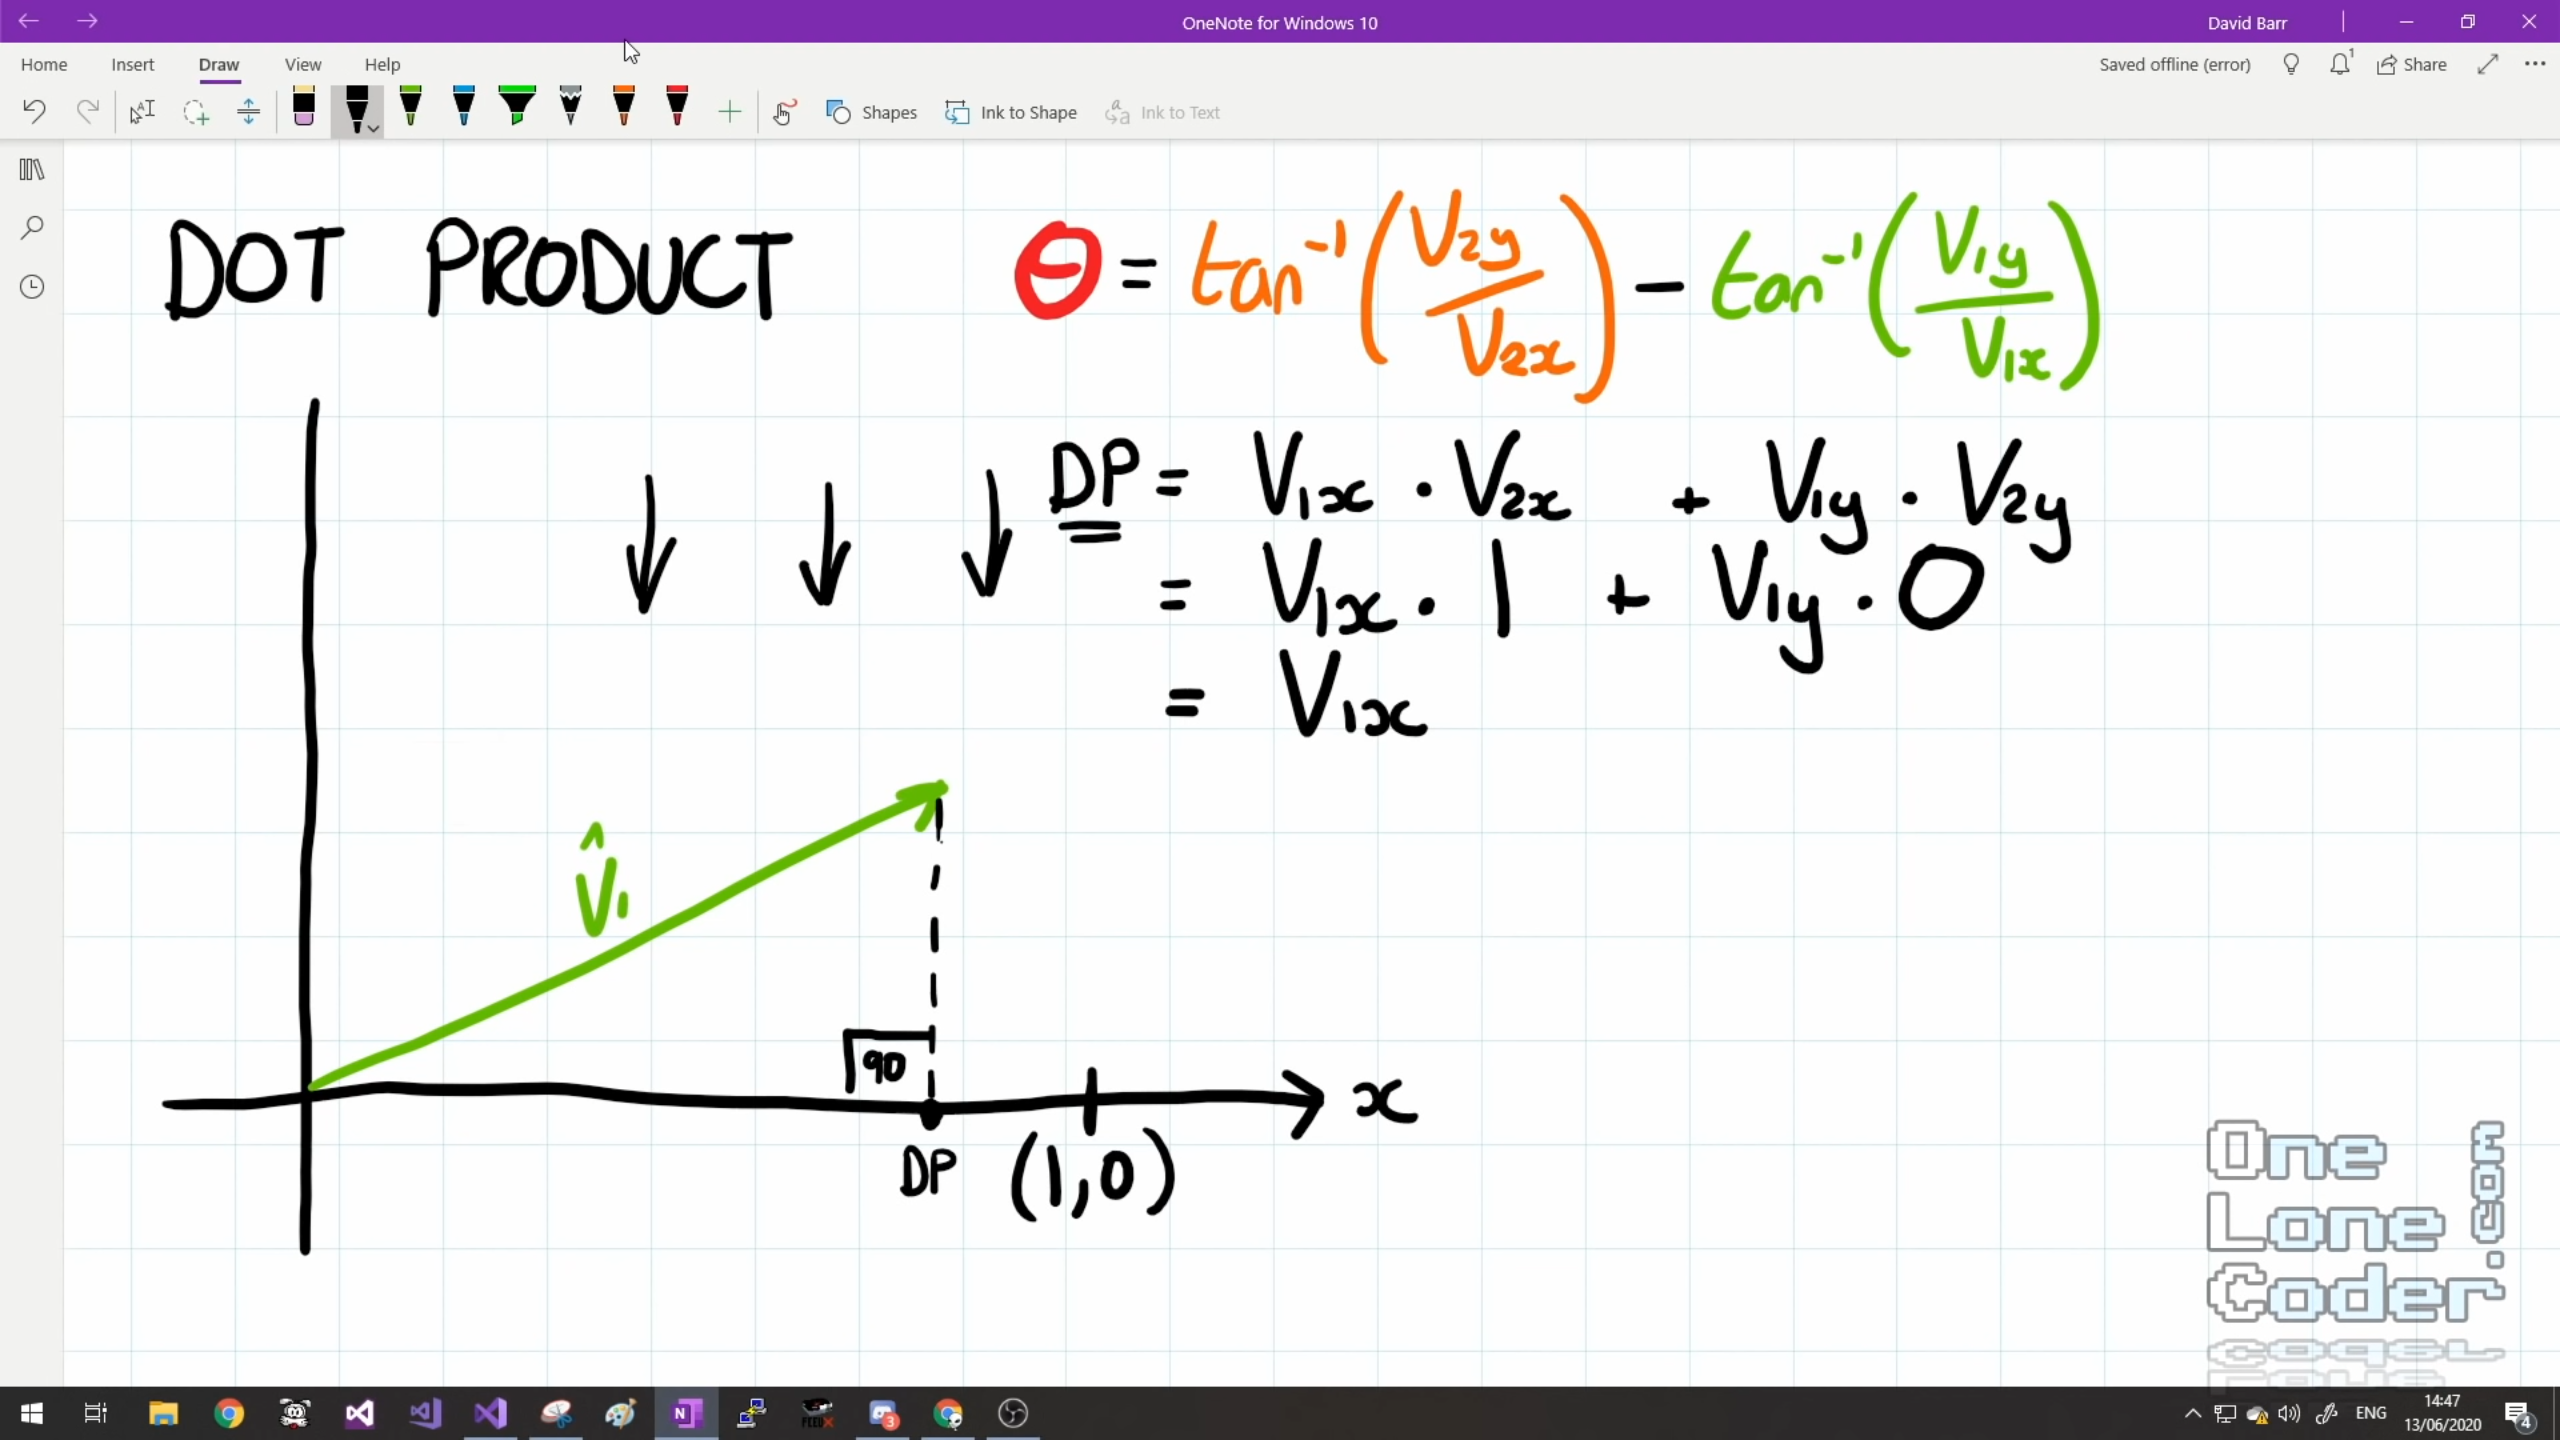 OneNote for Windows 10
David Barr
Home Insert Draw View Help
Saved offline (error)
1
Share
Shapes
Ink to Shape
Ink to Text
DOT PRODUCT
Θ = tan⁻¹(V2y/V2x) - tan⁻¹(V1y/V1x)
DP = V1x · V2x + V1y · V2y
= V1x · 1 + V1y · 0
= V1x
V̂1
90
x
DP (1,0)
One
Lone
Coder.
com
3
ENG
14:47
13/06/2020
4